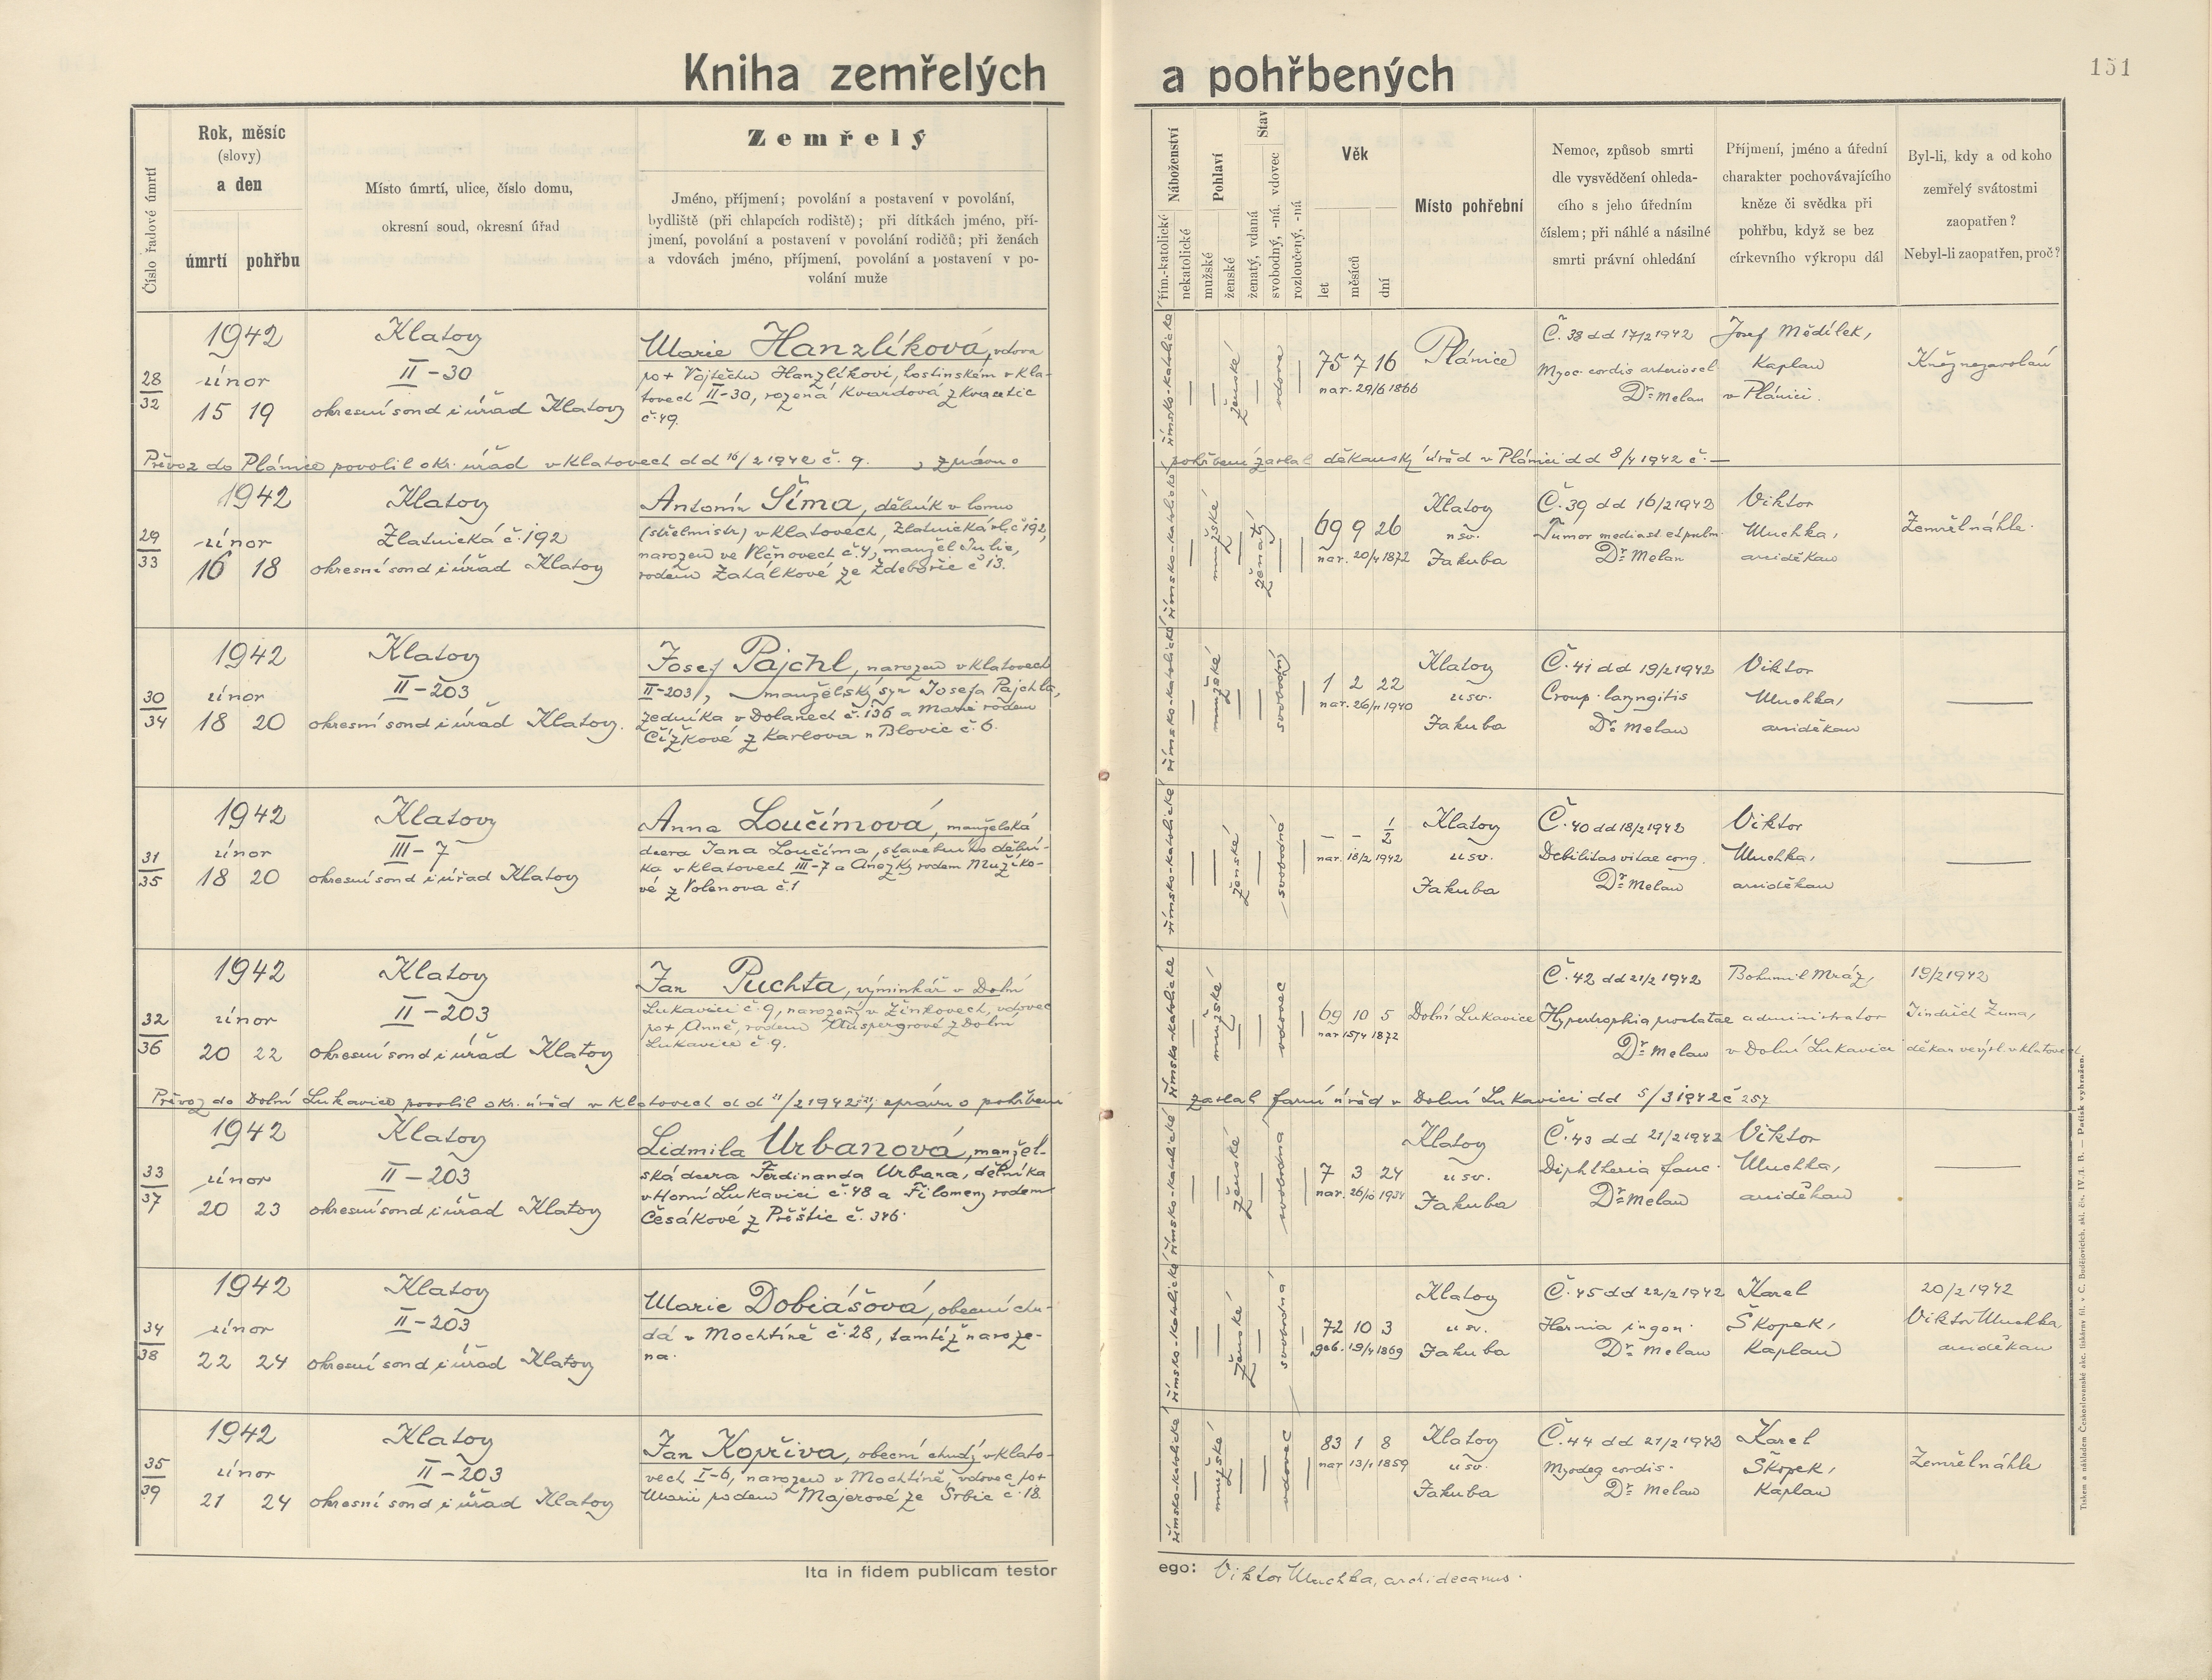 Kniha zemřelých a pohřbených
151
Číslo řadové úmrtí
Rok, měsíc
(slovy)
a den
úmrtí pohřbu
Místo úmrtí, ulice, číslo domu,
okresní soud, okresní úřad
Zemřelý
Jméno, příjmení; povolání a postavení v povolání,
bydliště (při chlapcích rodiště); při dítkách jméno, pří-
jmení, povolání a postavení v povolání rodičů; při ženách
a vdovách jméno, příjmení, povolání a postavení v po-
volání muže
Náboženství
řím.-katolické
nekatolické
Pohlaví
mužské
ženské
Stav
ženatý, vdaná
svobodný, -ná. vdovec
rozloučený, -ná
Věk
let
měsíců
dní
Místo pohřební
Nemoc, způsob smrti
dle vysvědčení ohleda-
cího s jeho úředním
číslem; při náhlé a násilné
smrti právní ohledání
Příjmení, jméno a úřední
charakter pochovávajícího
kněze či svědka při
pohřbu, když se bez
církevního výkropu dál
Byl-li, kdy a od koho
zemřelý svátostmi
zaopatřen?
Nebyl-li zaopatřen, proč?
28
32
1942
únor
15 19
Klatovy
II-30
okresní soud i úřad Klatovy
Marie Hanzlíková, vdova
po + Vojtěchu Hanzlíkovi, hostinském v Kla-
tovech II-30, rozená Kvardová z
č. 49.
římsko-katolické
ženské
vdova
75 7 16
nar. 29/6 1866
Plánice
Č. 38 dd 17/2 1942
Myoc. cordis arteriosel
Dr. Melan
Josef Mědílek,
Kaplan
v Plánici.
Kněz nezavolán
Převoz do Plánice povolil okr. úřad v Klatovech dd 16/2 1942 č. 9. , zprávu o
pohřbení zaslal děkanský úřad v Plánici dd 8/4 1942 č. —
29
33
1942
únor
16 18
Klatovy
Zlatnická č. 192
okresní soud i úřad Klatovy
Antonín Šíma, dělník v lomu
(střelmistr) v Klatovech, Zlatnická ul. č 192,
narozen ve Vlčnovech č. 4, manžel Julie,
rodem Zahálkové ze Ždebořic č 13.
římsko-katolické
mužské
ženatý
69 9 26
nar. 20/4 1872
Klatovy
u sv.
Jakuba
Č. 39 dd 16/2 1942
Tumor mediast et pulm.
Dr. Melan
Viktor
Muchka,
arciděkan
Zemřel náhle.
30
34
1942
únor
18 20
Klatovy
II-203
okresní soud i úřad Klatovy.
Josef Pajchl, narozen v Klatovech
II-203, manželský syn Josefa Pajchla,
zedníka v Dolanech č. 136 a Marie rodem
Čížkové z Karlova n Blovic č. 6.
římsko-katolické
mužské
svobodný
1 2 22
nar. 26/11 1940
Klatovy
u sv.
Jakuba
Č. 41 dd 19/2 1942
Croup. laryngitis
Dr. Melan
Viktor
Muchka,
arciděkan
—
31
35
1942
únor
18 20
Klatovy
III-7
okresní soud i úřad Klatovy
Anna Loučímová, manželská
dcera Jana Loučíma, stavebního dělní-
ka v Klatovech III-7 a Anežky rodem Muzíko-
vé z Volenova č. 1
římsko-katolické
ženské
svobodná
— — 1/2
nar. 18/2 1942
Klatovy
u sv.
Jakuba
Č. 40 dd 18/2 1942
Debilitas vitae cong.
Dr. Melan
Viktor
Muchka,
arciděkan
—
32
36
1942
únor
20 22
Klatovy
II-203
okresní soud i úřad Klatovy
Jan Puchta, výminkář v Dolní
Lukavici č 9, narozený v Žinkovech, vdovec
po + Anně, rodem Auspergrové z Dolní
Lukavice č 9.
římsko-katolické
mužské
vdovec
69 10 5
nar 15/4 1872
Dolní Lukavice
Č. 42 dd 21/2 1942
Hypertrophia prostatae
Dr. Melan
Bohumil Mráz,
administrator
v Dolní Lukavici
19/2 1942
Jindřich Zuna,
děkan ve výsl. v Klatovech
Převoz do Dolní Lukavice povolil okr. úřad v Klatovech dd 21/2 1942, zprávu o pohřbení
zaslal farní úřad v Dolní Lukavici dd 5/3 1942 č 257
33
37
1942
únor
20 23
Klatovy
II-203
okresní soud i úřad Klatovy
Lidmila Urbanová, manžel-
ská dcera Ferdinanda Urbana, dělníka
v Horní Lukavici č. 48 a Filomeny rodem
Česákové z Přeštic č. 346.
římsko-katolické
ženské
svobodná
7 3 24
nar. 26/10 1934
Klatovy
u sv.
Jakuba
Č. 43 dd 21/2 1942
Diphtheria fauc.
Dr. Melan
Viktor
Muchka,
arciděkan
—
34
38
1942
únor
22 24
Klatovy
II-203
okresní soud i úřad Klatovy
Marie Dobiášová, obecní chu-
dá v Mochtíně č. 28, tamtéž naroze-
na.
římsko-katolické
ženské
svobodná
72 10 3
geb. 19/4 1869
Klatovy
u sv.
Jakuba
Č. 45 dd 22/2 1942
Hernia ingon.
Dr. Melan
Karel
Škopek,
Kaplan
20/2 1942
Viktor Muchka
arciděkan
35
39
1942
únor
21 24
Klatovy
II-203
okresní soud i úřad Klatovy
Jan Kopřiva, obecní chudý v Klato-
vech I-6, narozen v Mochtíně, vdovec po +
Marii rodem Majerové ze Srbic č. 18.
římsko-katolické
mužské
vdovec
83 1 8
nar 13/1 1859
Klatovy
u sv.
Jakuba
Č. 44 dd 21/2 1942
Myodeg cordis.
Dr. Melan
Karel
Škopek,
Kaplan
Zemřel náhle
Ita in fidem publicam testor
ego: Viktor Muchka, archidecanus.
Tiskem a nákladem Českoslovanské akc. tiskárny fil. v C. Budějovicích. skl. čís. IV./1. B. — Patisk vyhražen.